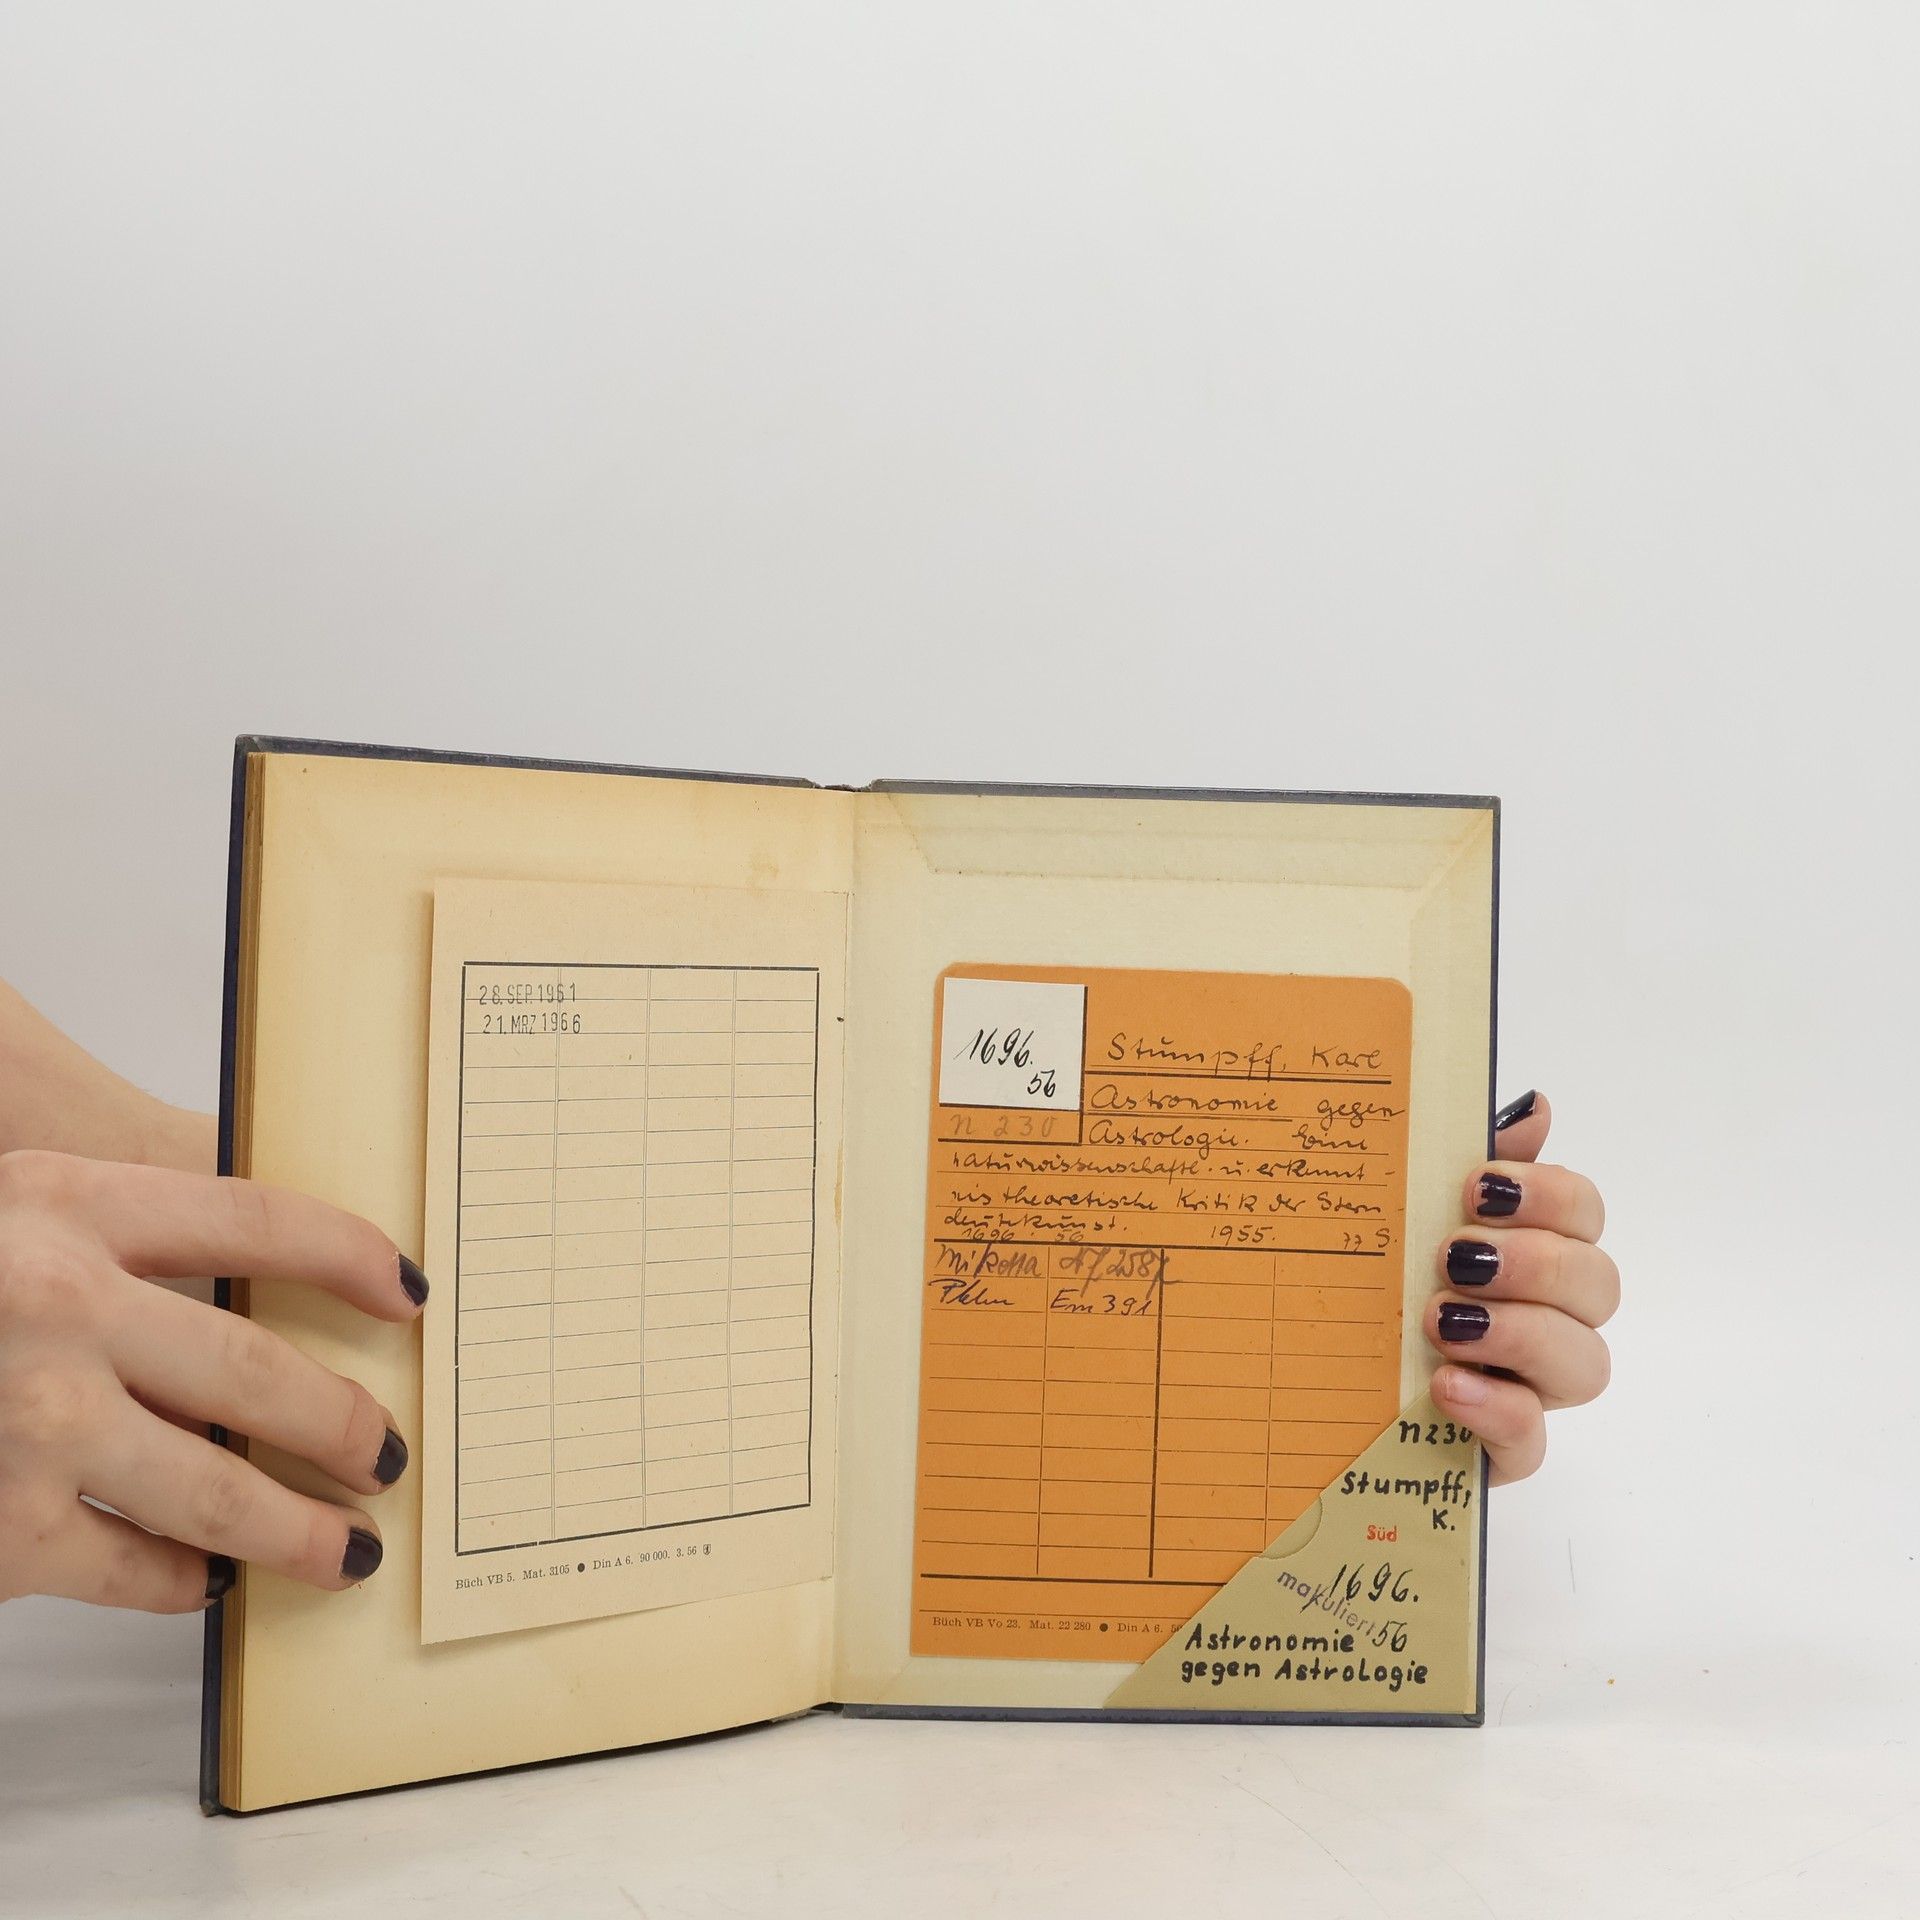 28. SEP. 1961
21. MRZ 1966
Büch VB 5. Mat. 3105 ● Din A 6. 90 000. 3. 56
1696.
56
n 230
Stumpff, Karl
Astronomie gegen
Astrologie. Eine
naturwissenschaftl. u. erkennt-
nistheoretische Kritik der Stern-
deutekunst.
1696. 56 1955. 77 S.
Em 391
Büch VB Vo 23. Mat. 22 280 ● Din A 6.
n 230
Stumpff,
K.
Süd
1696.
makuliert
56
Astronomie
gegen Astrologie